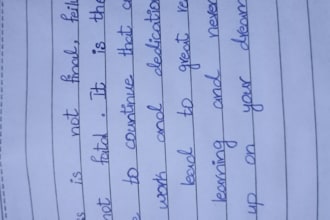 is not final, fail
not fatal. It is the
to countinue that c
work and dedication
lead to great re
learning and never
up on your dream